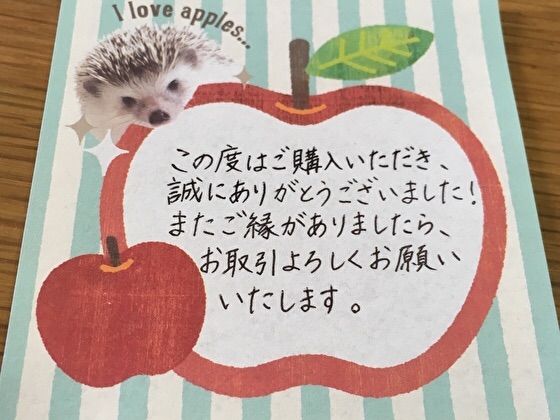 I love apples...
この度はご購入いただき、
誠にありがとうございました!
またご縁がありましたら、
お取引よろしくお願い
いたします。